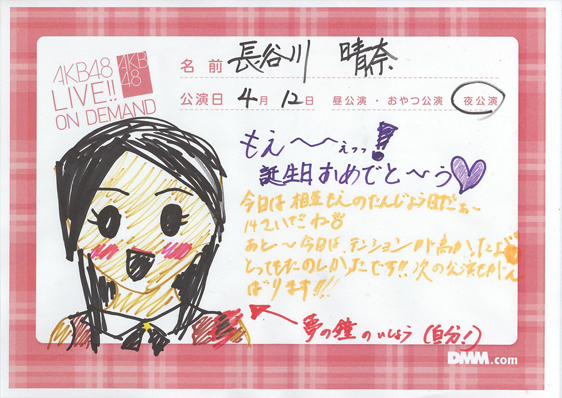 AKB48
LIVE!!
ON DEMAND
AKB
48
名前 長谷川 晴奈
公演日 4月 12日 昼公演・おやつ公演 夜公演
もえ〜〜ぇっっ!
誕生日おめでと〜う
今日は相笠もえのたんじょう日だぁ〜
14さいだね
あと〜今日は、テンションが高かったよ
とってもたのしかったです!!次の公演もがん
ばります!!!
夢の鐘のいしょう(自分!)
DMM.com